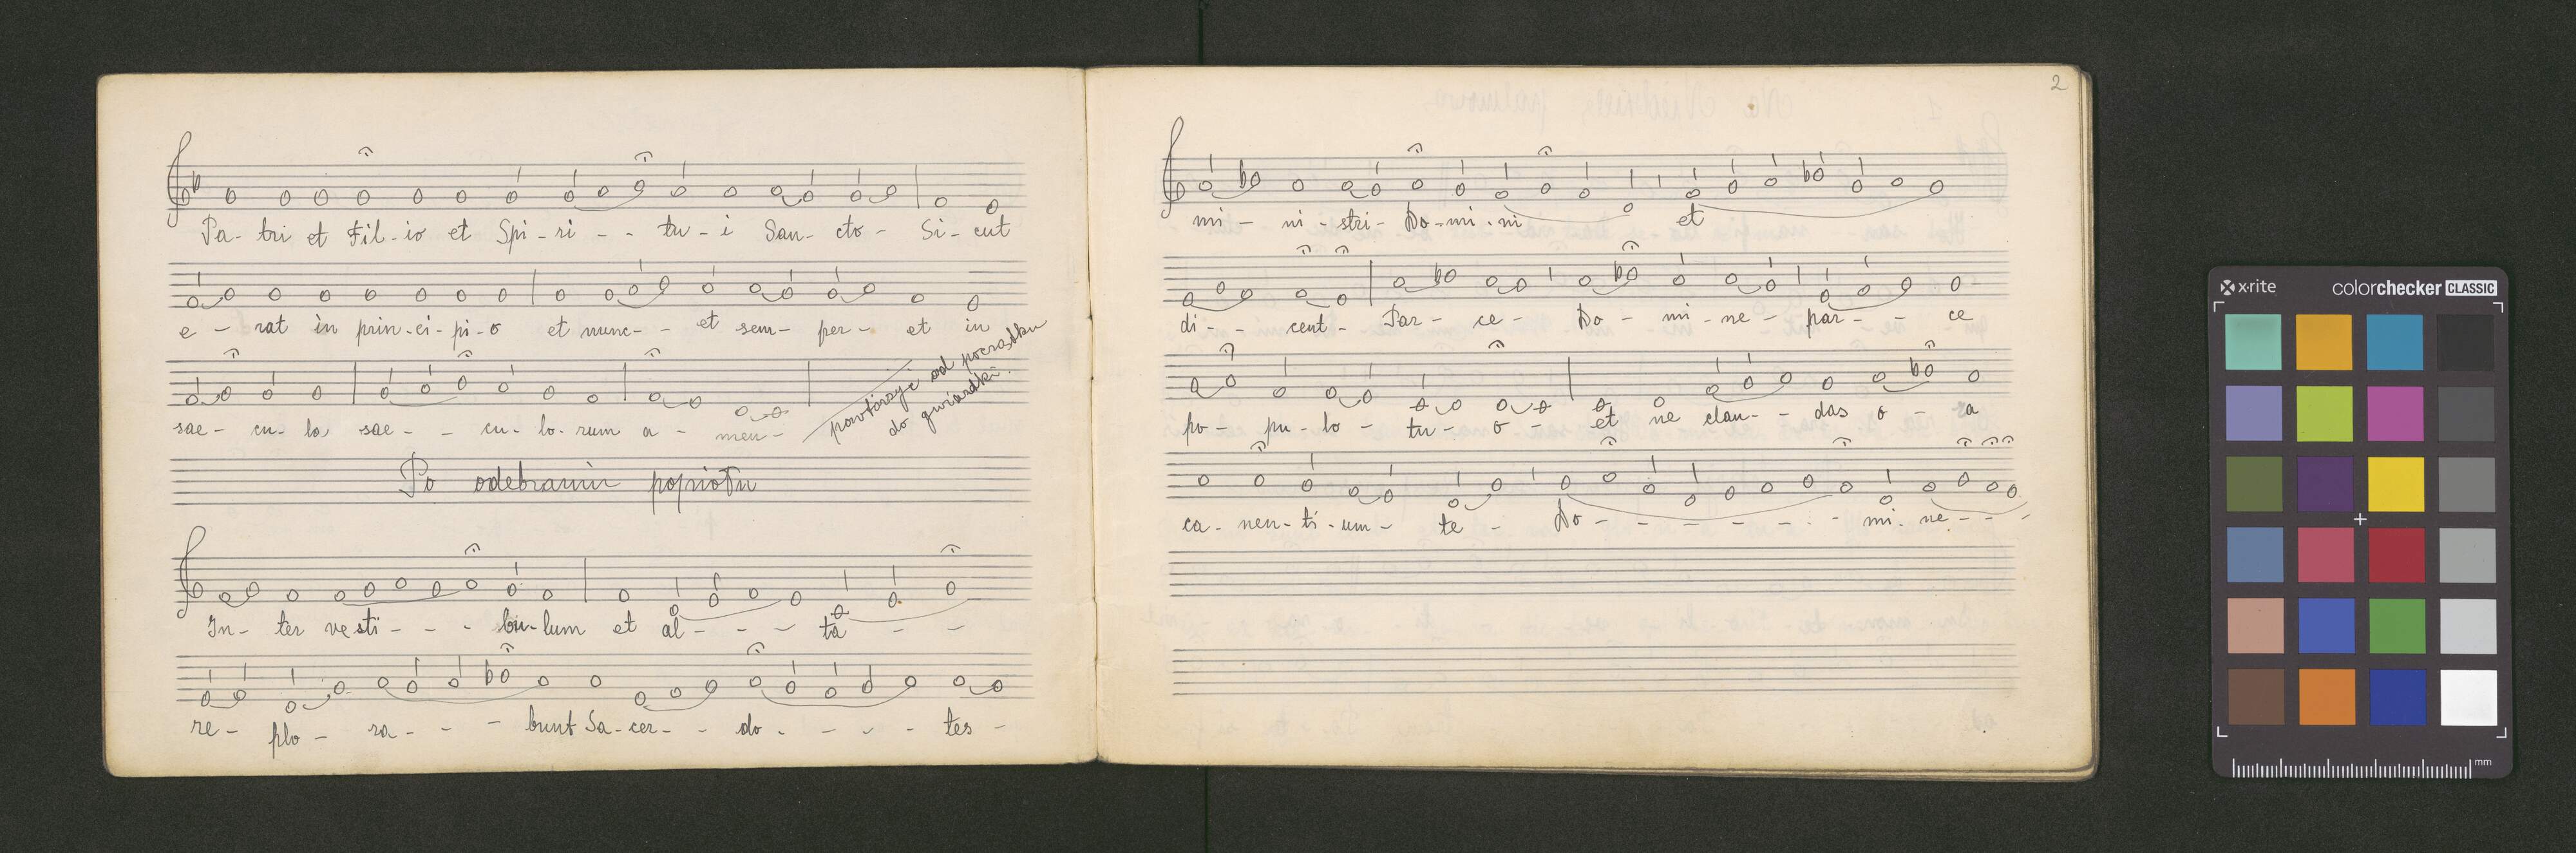 Pa- tri et Fil- io et Spi- ri - - tu - i San- cto - Si- cut
e - rat in prin-ci-pi-o et nunc- - et sem- per - et in
sae - cu- lo, sae - - cu- lo- rum a - men -
powtórzyć od początku
do gwiazdki.
Po odebraniu popiołu
In- ter vesti - - - bu-lum et al - - - ta - -
re - plo - ra - - - bunt Sa-cer- - do - - - - tes -
2
mi - ni - stri- Do-mi-ni et
di - - cent - Par - ce - Do - mi - ne - par - - ce
po - pu- lo - tu - o - et ne clau - - das o - a
ca- nen- ti- um - te - Do - - - - - - - mi- ne - - -
x·rite colorchecker CLASSIC
mm